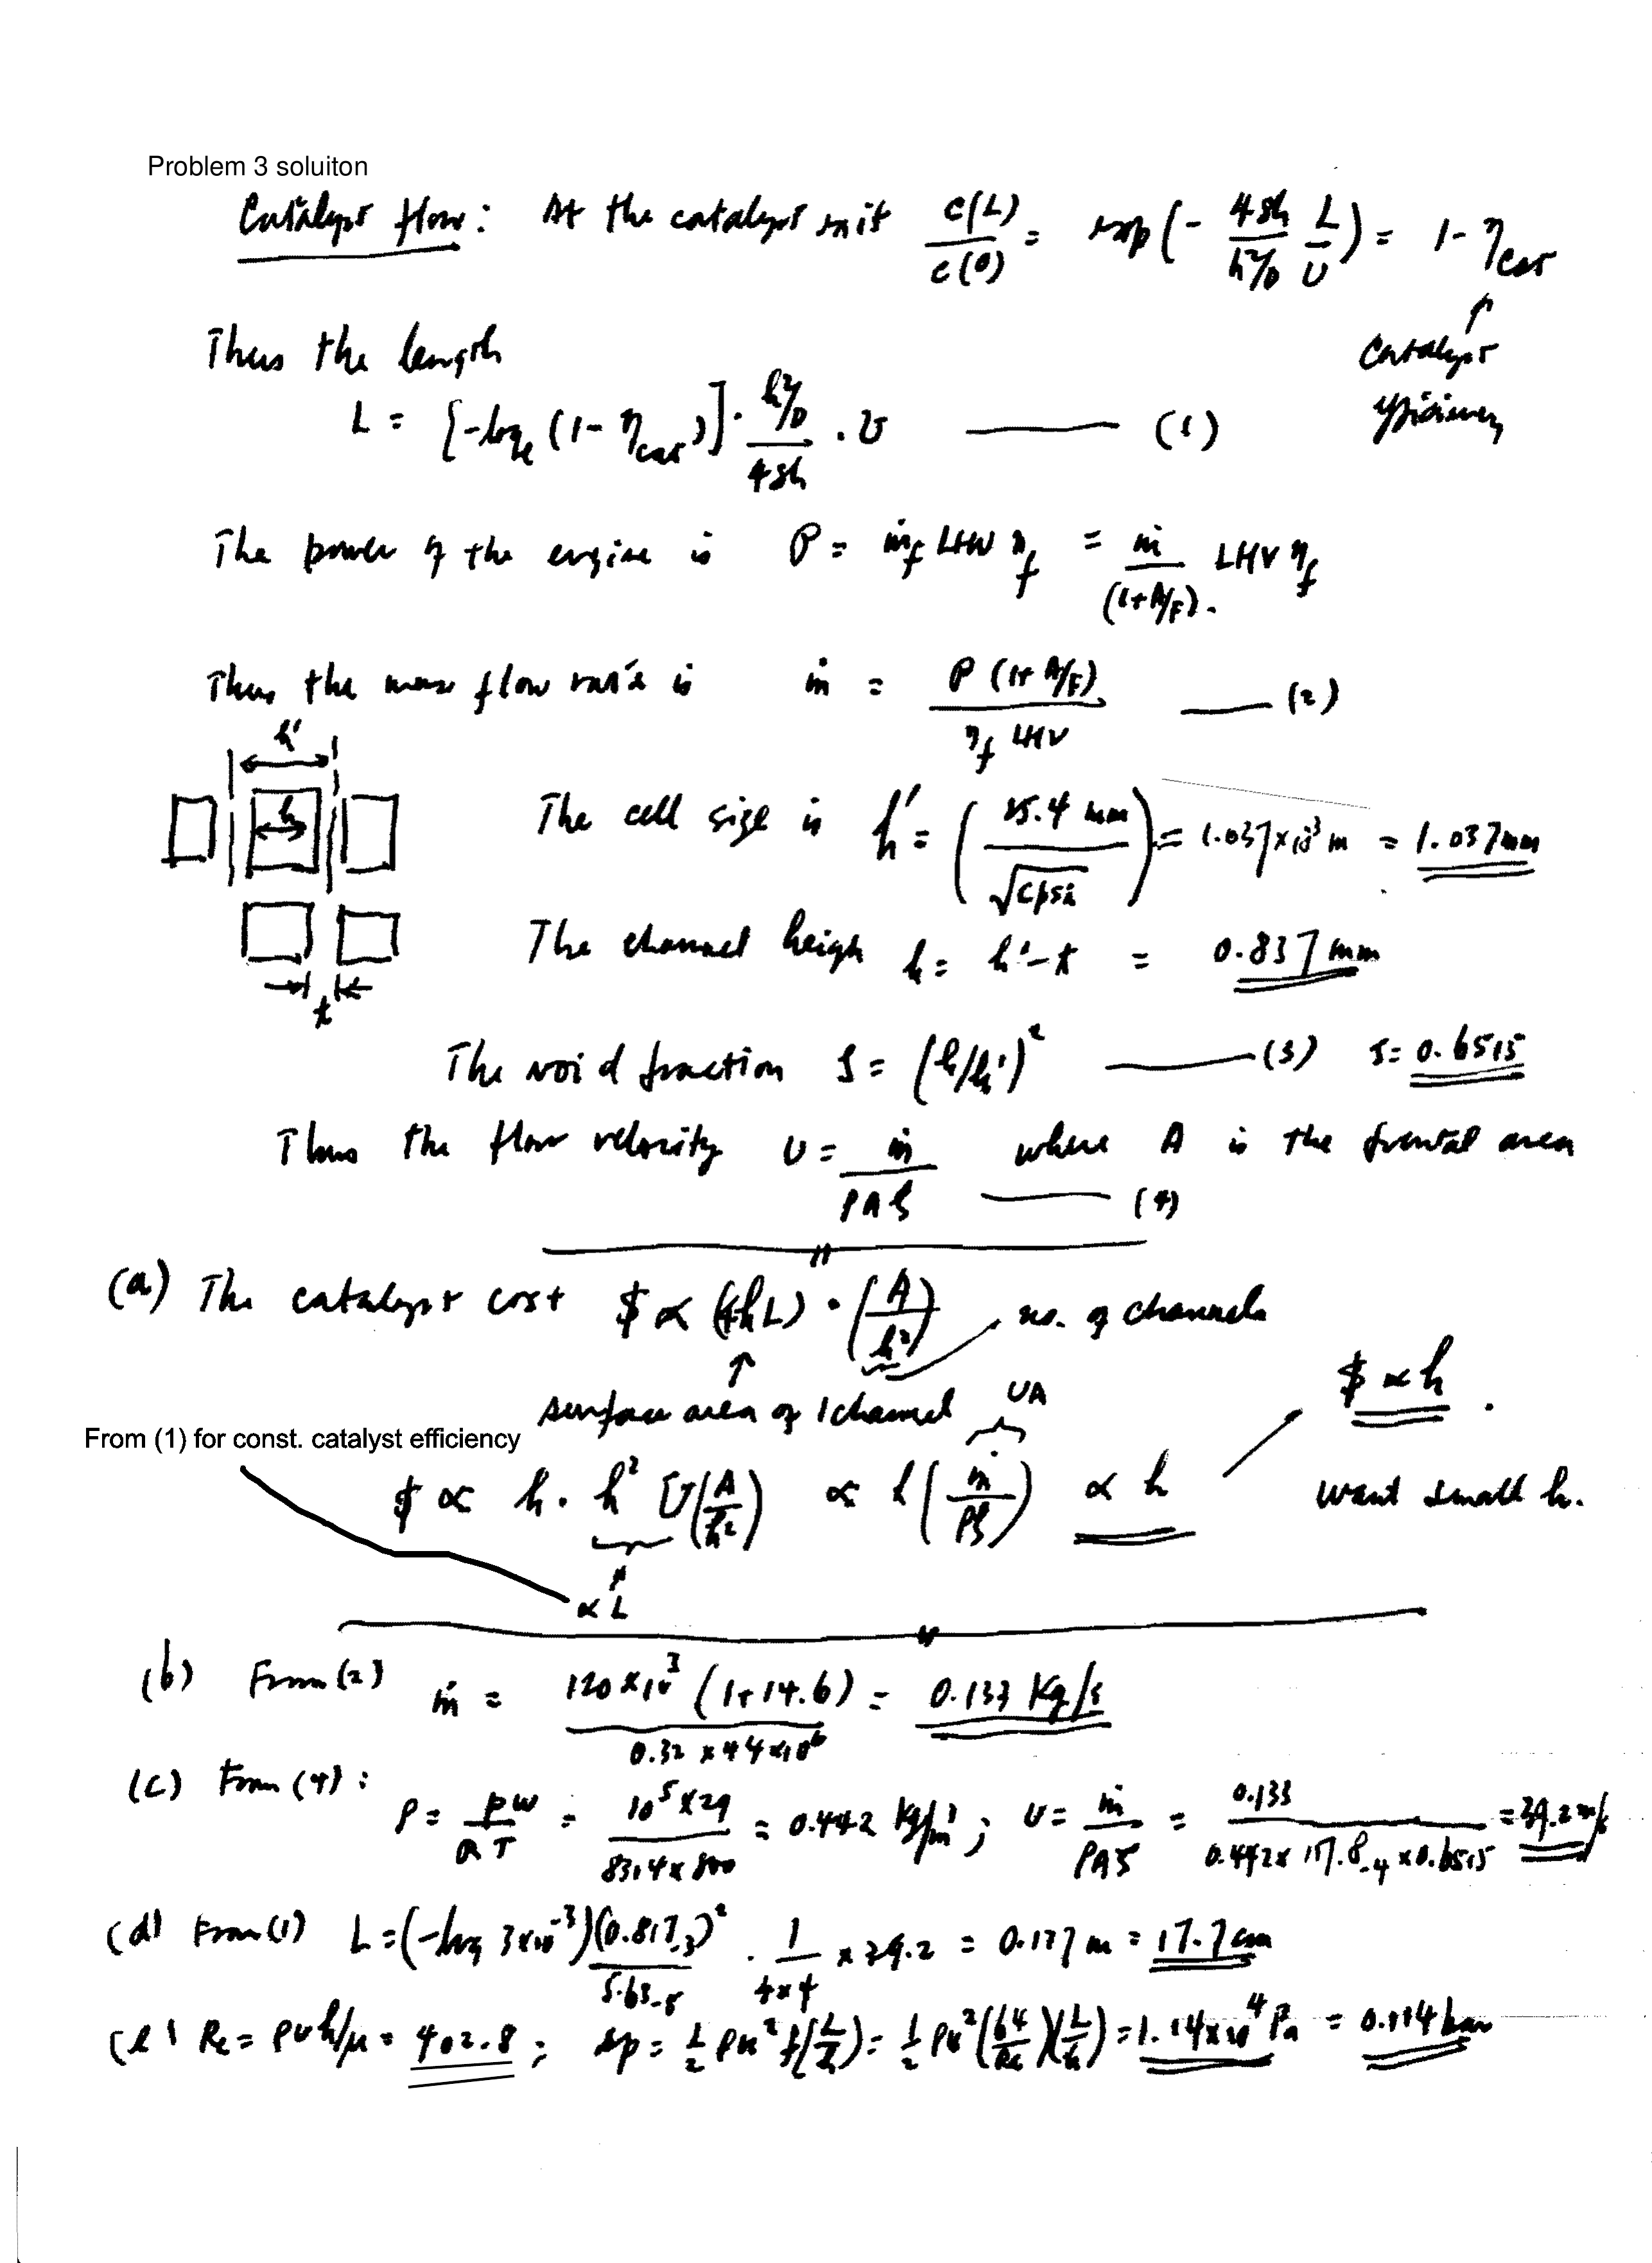 Problem 3 soluiton
Catalyst flow: At the catalyst exit c(L)/c(0) = exp(- 4Sh/(h²/D) L/U) = 1-η_cat
↑
Catalyst
efficiency
Thus the length
L = [-log_e (1-η_cat)] · (h²/D)/(4Sh) · U ——— (1)
The power of the engine is P = ṁ_f LHV η_f = ṁ/(1+A/F) . LHV η_f
Thus the mass flow rate is ṁ = P (1+A/F)/(η_f LHV) ——— (2)
h'
h
t
The cell size is h' = (25.4 mm/√cpsi) = 1.037×10⁻³ m = 1.037mm
The channel heigh h = h'-t = 0.837 mm
The void fraction ζ = (h/h')² ——— (3) ζ= 0.6515
Thus the flow velocity U = ṁ/(ρAζ) where A is the frontal area
——— (4)
(a) The catalyst cost $ ∝ (4hL) · (A/h²) no. of channels
↑
surface area of 1 channel
UA
$ ∝ h .
From (1) for const. catalyst efficiency
$ ∝ h · h² U(A/h²) ∝ h(ṁ/(ρζ)) ∝ h
want small h.
∝ L
(b) From (2) ṁ = 120×10³ (1+14.6)/(0.32 × 44×10⁶) = 0.133 Kg/s
(c) From (4) : ρ = pW/(RT) = 10⁵×29/(8314×800) = 0.442 Kg/m³ ; U = ṁ/(ρAζ) = 0.133/(0.442× 117.8₋₄ ×0.6515) = 39.2 m/s
(d) From (1) L = (-log 3×10⁻³)(0.817₋₃)²/5.63₋₅ · 1/(4×4) × 39.2 = 0.177 m = 17.7 cm
(e) Re = ρUh/μ = 402.8 ; Δp = ½ ρu² f(L/h) = ½ ρu² (64/Re)(L/h) = 1.14×10⁴ Pa = 0.114 bar